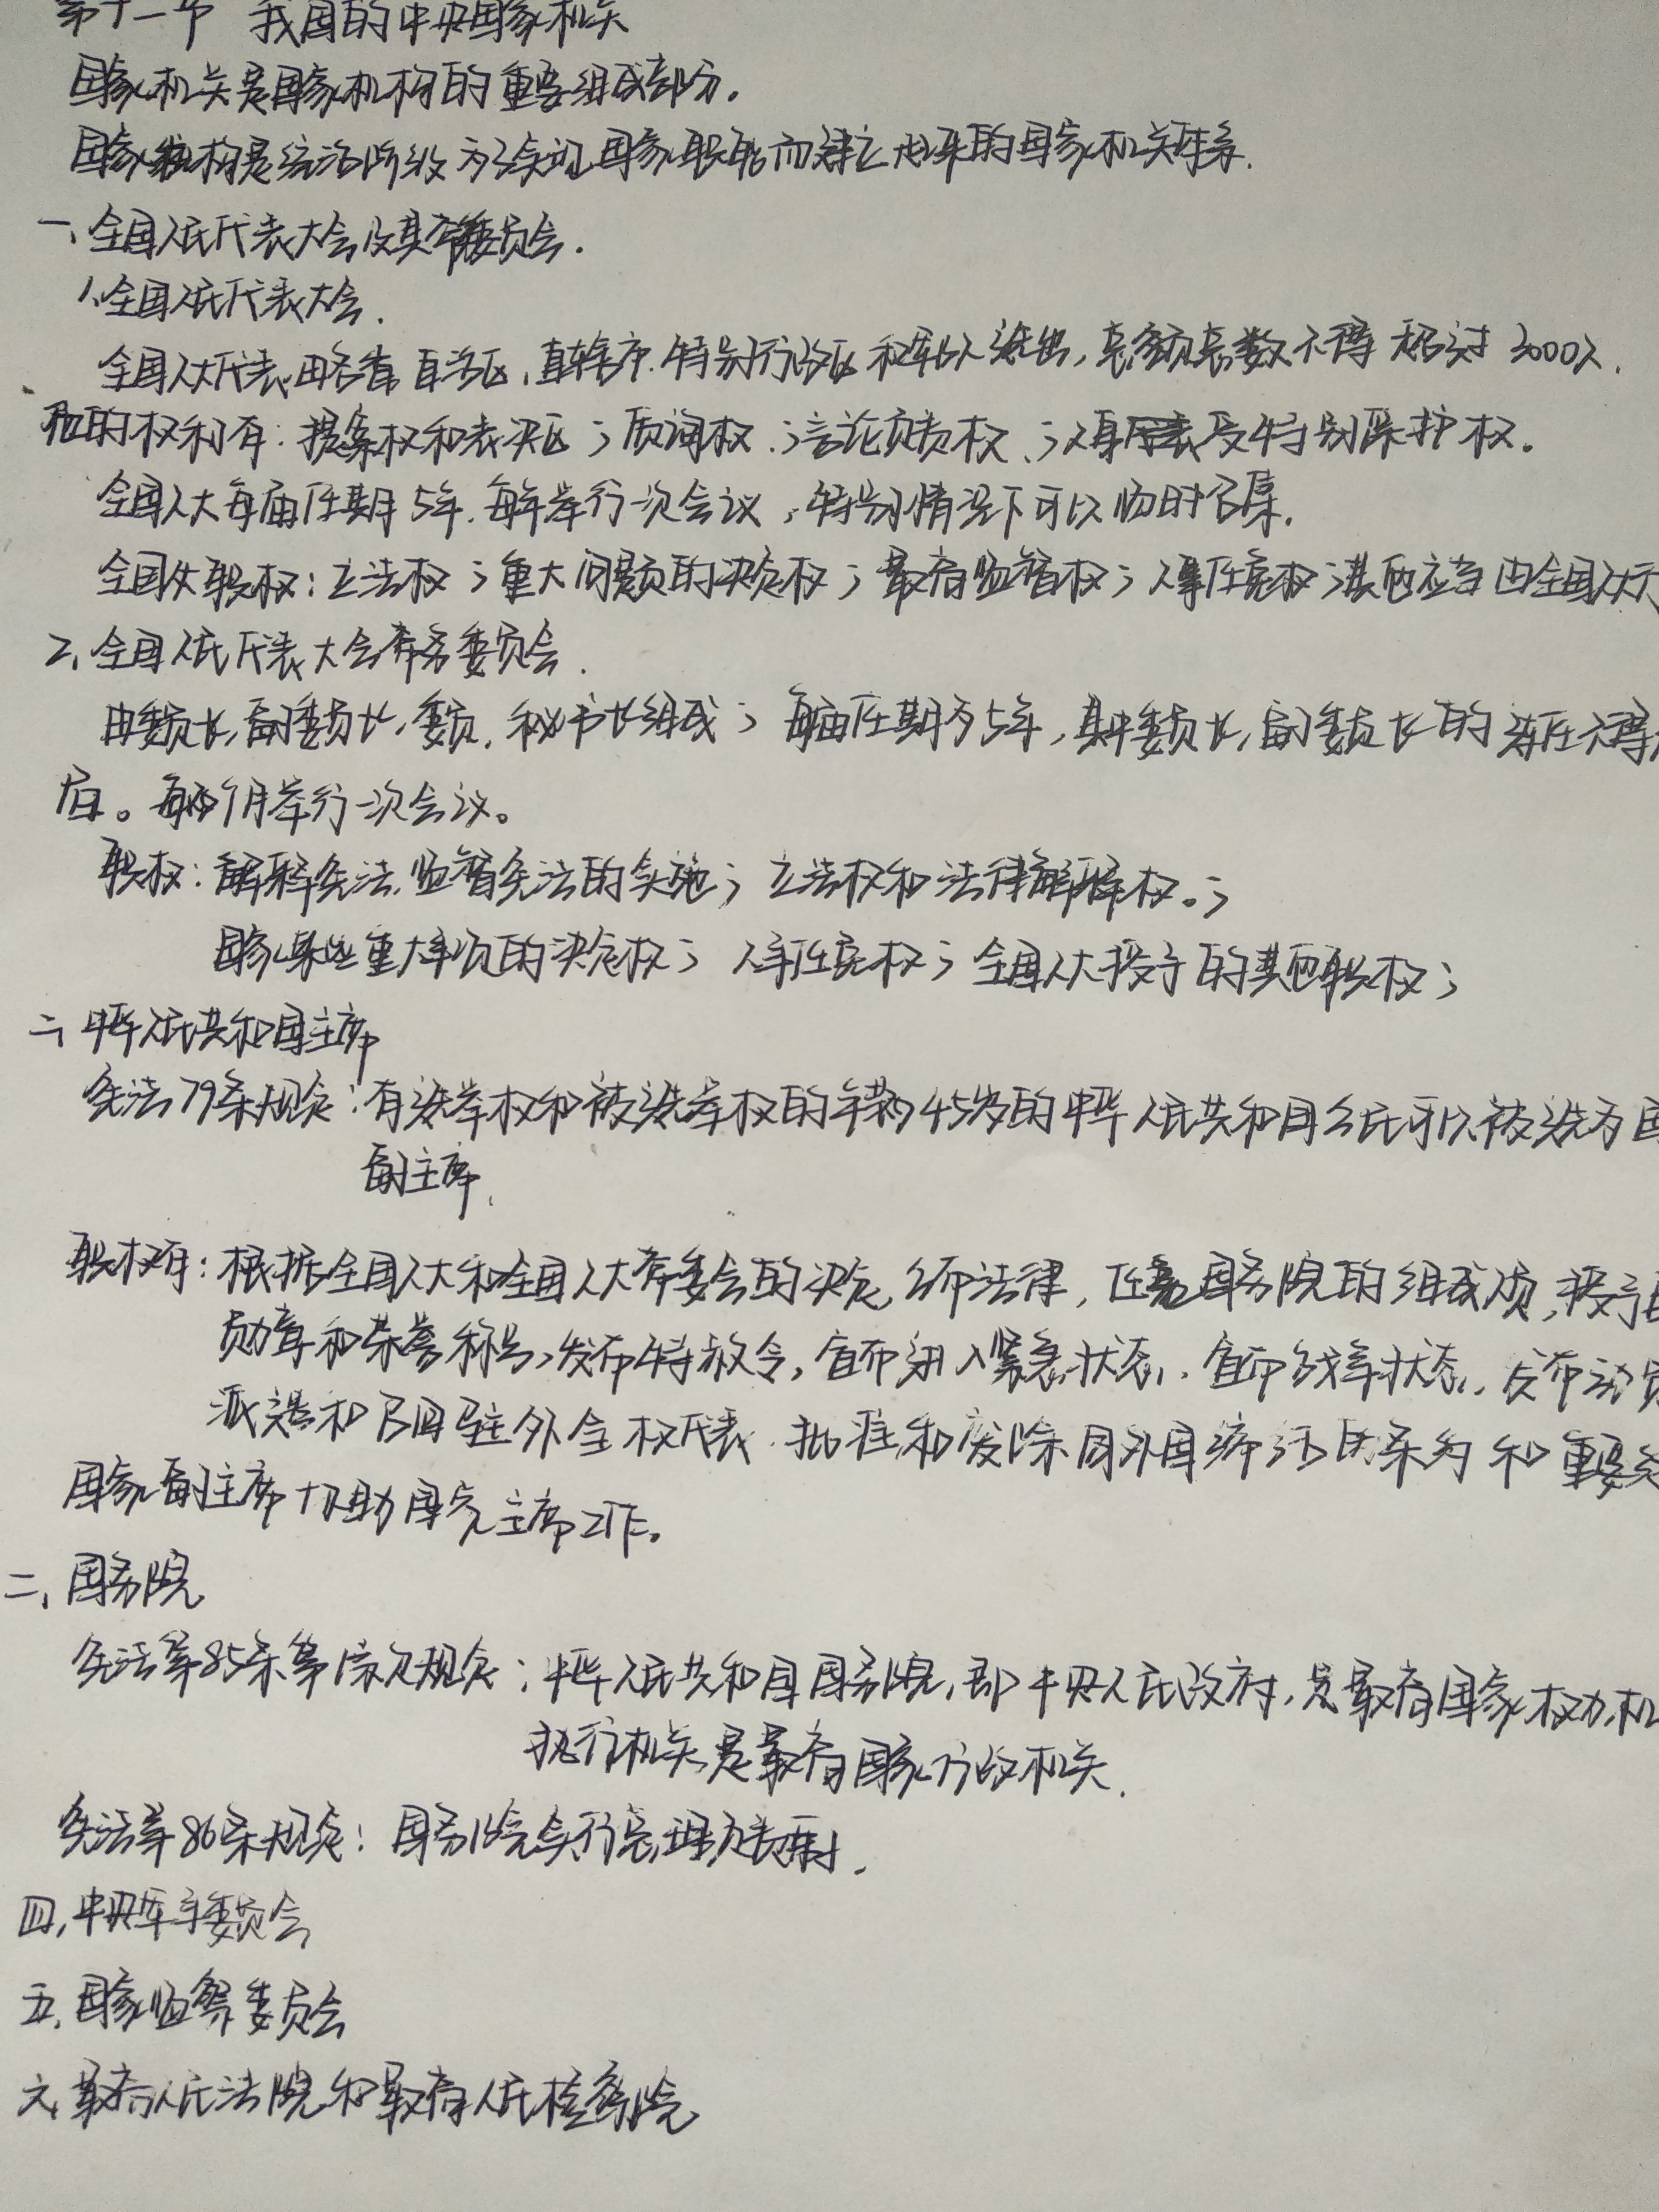 第十一节 我国的中央国家机关
国家机关是国家机构的重要组成部分.
国家机构是统治阶级为了实现国家职能而建立起来的国家机关体系.
一、全国人民代表大会及其常务委员会.
1、全国人民代表大会.
全国人大代表由各省、自治区、直辖市、特别行政区和军队选出,总数不得超过3000人.
他们的权利有:提案权和表决权;质询权;言论负责权;人身受特别保护权.
全国人大每届任期5年.每年举行一次会议,特别情况下可以临时召集.
全国人大职权:立法权;重大问题的决定权;最高监督权;人事任免权;其他应当由全国人大
2、全国人民代表大会常务委员会.
由委员长,副委员长,委员,秘书长组成;每届任期为5年,其中委员长,副委员长的连任不得
届。每两个月举行一次会议。
职权:解释宪法,监督宪法的实施;立法权和法律解释权。;
国家某些重大事项的决定权;人事任免权;全国人大授予的其他职权;
二、中华人民共和国主席
宪法79条规定:有选举权和被选举权的年满45岁的中华人民共和国公民可以被选为国
副主席.
职权有:根据全国人大和全国人大常委会的决定,公布法律,任免国务院的组成人员,授予国
勋章和荣誉称号,发布特赦令,宣布进入紧急状态,宣布战争状态,发布动员
派遣和召回驻外全权代表.批准和废除同外国缔结的条约和重要
国家副主席协助国家主席工作。
二、国务院
宪法第85条第1款规定:中华人民共和国国务院,即中央人民政府,是最高国家权力机
执行机关,是最高国家行政机关.
宪法第86条规定:国务院实行总理负责制.
四,中央军事委员会
五.国家监察委员会
六、最高人民法院和最高人民检察院